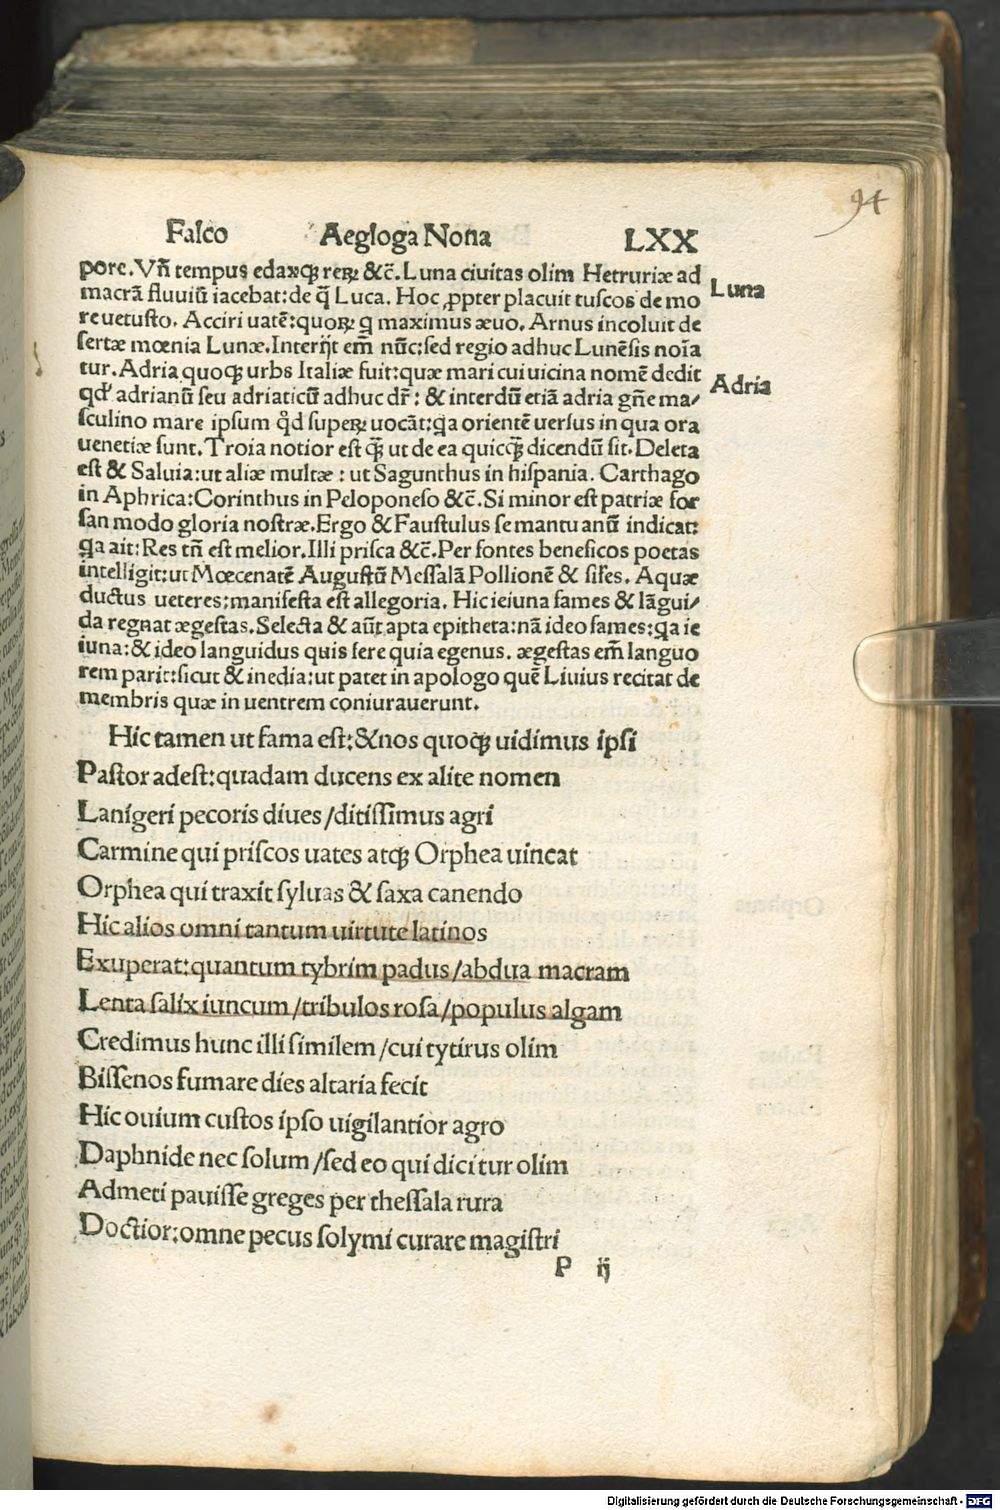 94
Falco Aegloga Nona LXX
pore. Vñ tempus edaxqꝫ reꝝ &c̃. Luna ciuitas olim Hetruriæ ad
macrã fluuiũ iacebat: de q̃ Luca. Hoc ꝓpter placuit tuscos de mo
re uetusto. Acciri uatẽ: quoꝝ q maximus æuo. Arnus incoluit de
sertæ mœnia Lunæ. Interijt em̃ nũc: sed regio adhuc Lunẽsis noĩa
tur. Adria quoqꝫ urbs Italiæ fuit: quæ mari cui uicina nomẽ dedit
qd' adrianũ seu adriaticũ adhuc dr̃: & interdũ etiã adria gñe ma/
sculino mare ipsum q̊d supeꝝ uocãt: qa orientẽ uersus in qua ora
uenetiæ sunt. Troia notior est q̃ꝫ ut de ea quicq̃ꝫ dicendũ sit. Deleta
est & Saluia: ut aliæ multæ: ut Sagunthus in hispania. Carthago
in Aphrica: Corinthus in Peloponeso &c̃. Si minor est patriæ for
san modo gloria nostræ. Ergo & Faustulus se mantuanũ indicat:
qa ait: Res tñ est melior. Illi prisca &c̃. Per fontes beneficos poetas
intelligit: ut Mœcenatẽ Augustũ Messalã Pollionẽ & sil'es. Aquæ
ductus ueteres: manifesta est allegoria. Hic ieiuna fames & lãgui/
da regnat ægestas. Selecta & aũt apta epitheta: nã ideo fames: qa ie
iuna: & ideo languidus quis fere quia egenus. ægestas em̃ languo
rem parit: sicut & inedia: ut patet in apologo quẽ Liuius recitat de
membris quæ in uentrem coniurauerunt.
Luna
Adria
Hic tamen ut fama est: & nos quoqꝫ uidimus ipsi
Pastor adest: quadam ducens ex alite nomen
Lanigeri pecoris diues / ditissimus agri
Carmine qui priscos uates atqꝫ Orphea uincat
Orphea qui traxit syluas & saxa canendo
Hic alios omni tantum uirtute latinos
Exuperat: quantum tybrim padus / abdua macram
Lenta salix iuncum / tribulos rosa / populus algam
Credimus hunc illi similem / cui tytirus olim
Bissenos fumare dies altaria fecit
Hic ouium custos ipso uigilantior agro
Daphnide nec solum / sed eo qui dicitur olim
Admeti pauisse greges per thessala rura
Doctior: omne pecus solymi curare magistri
P ij
Digitalisierung gefördert durch die Deutsche Forschungsgemeinschaft - DFG